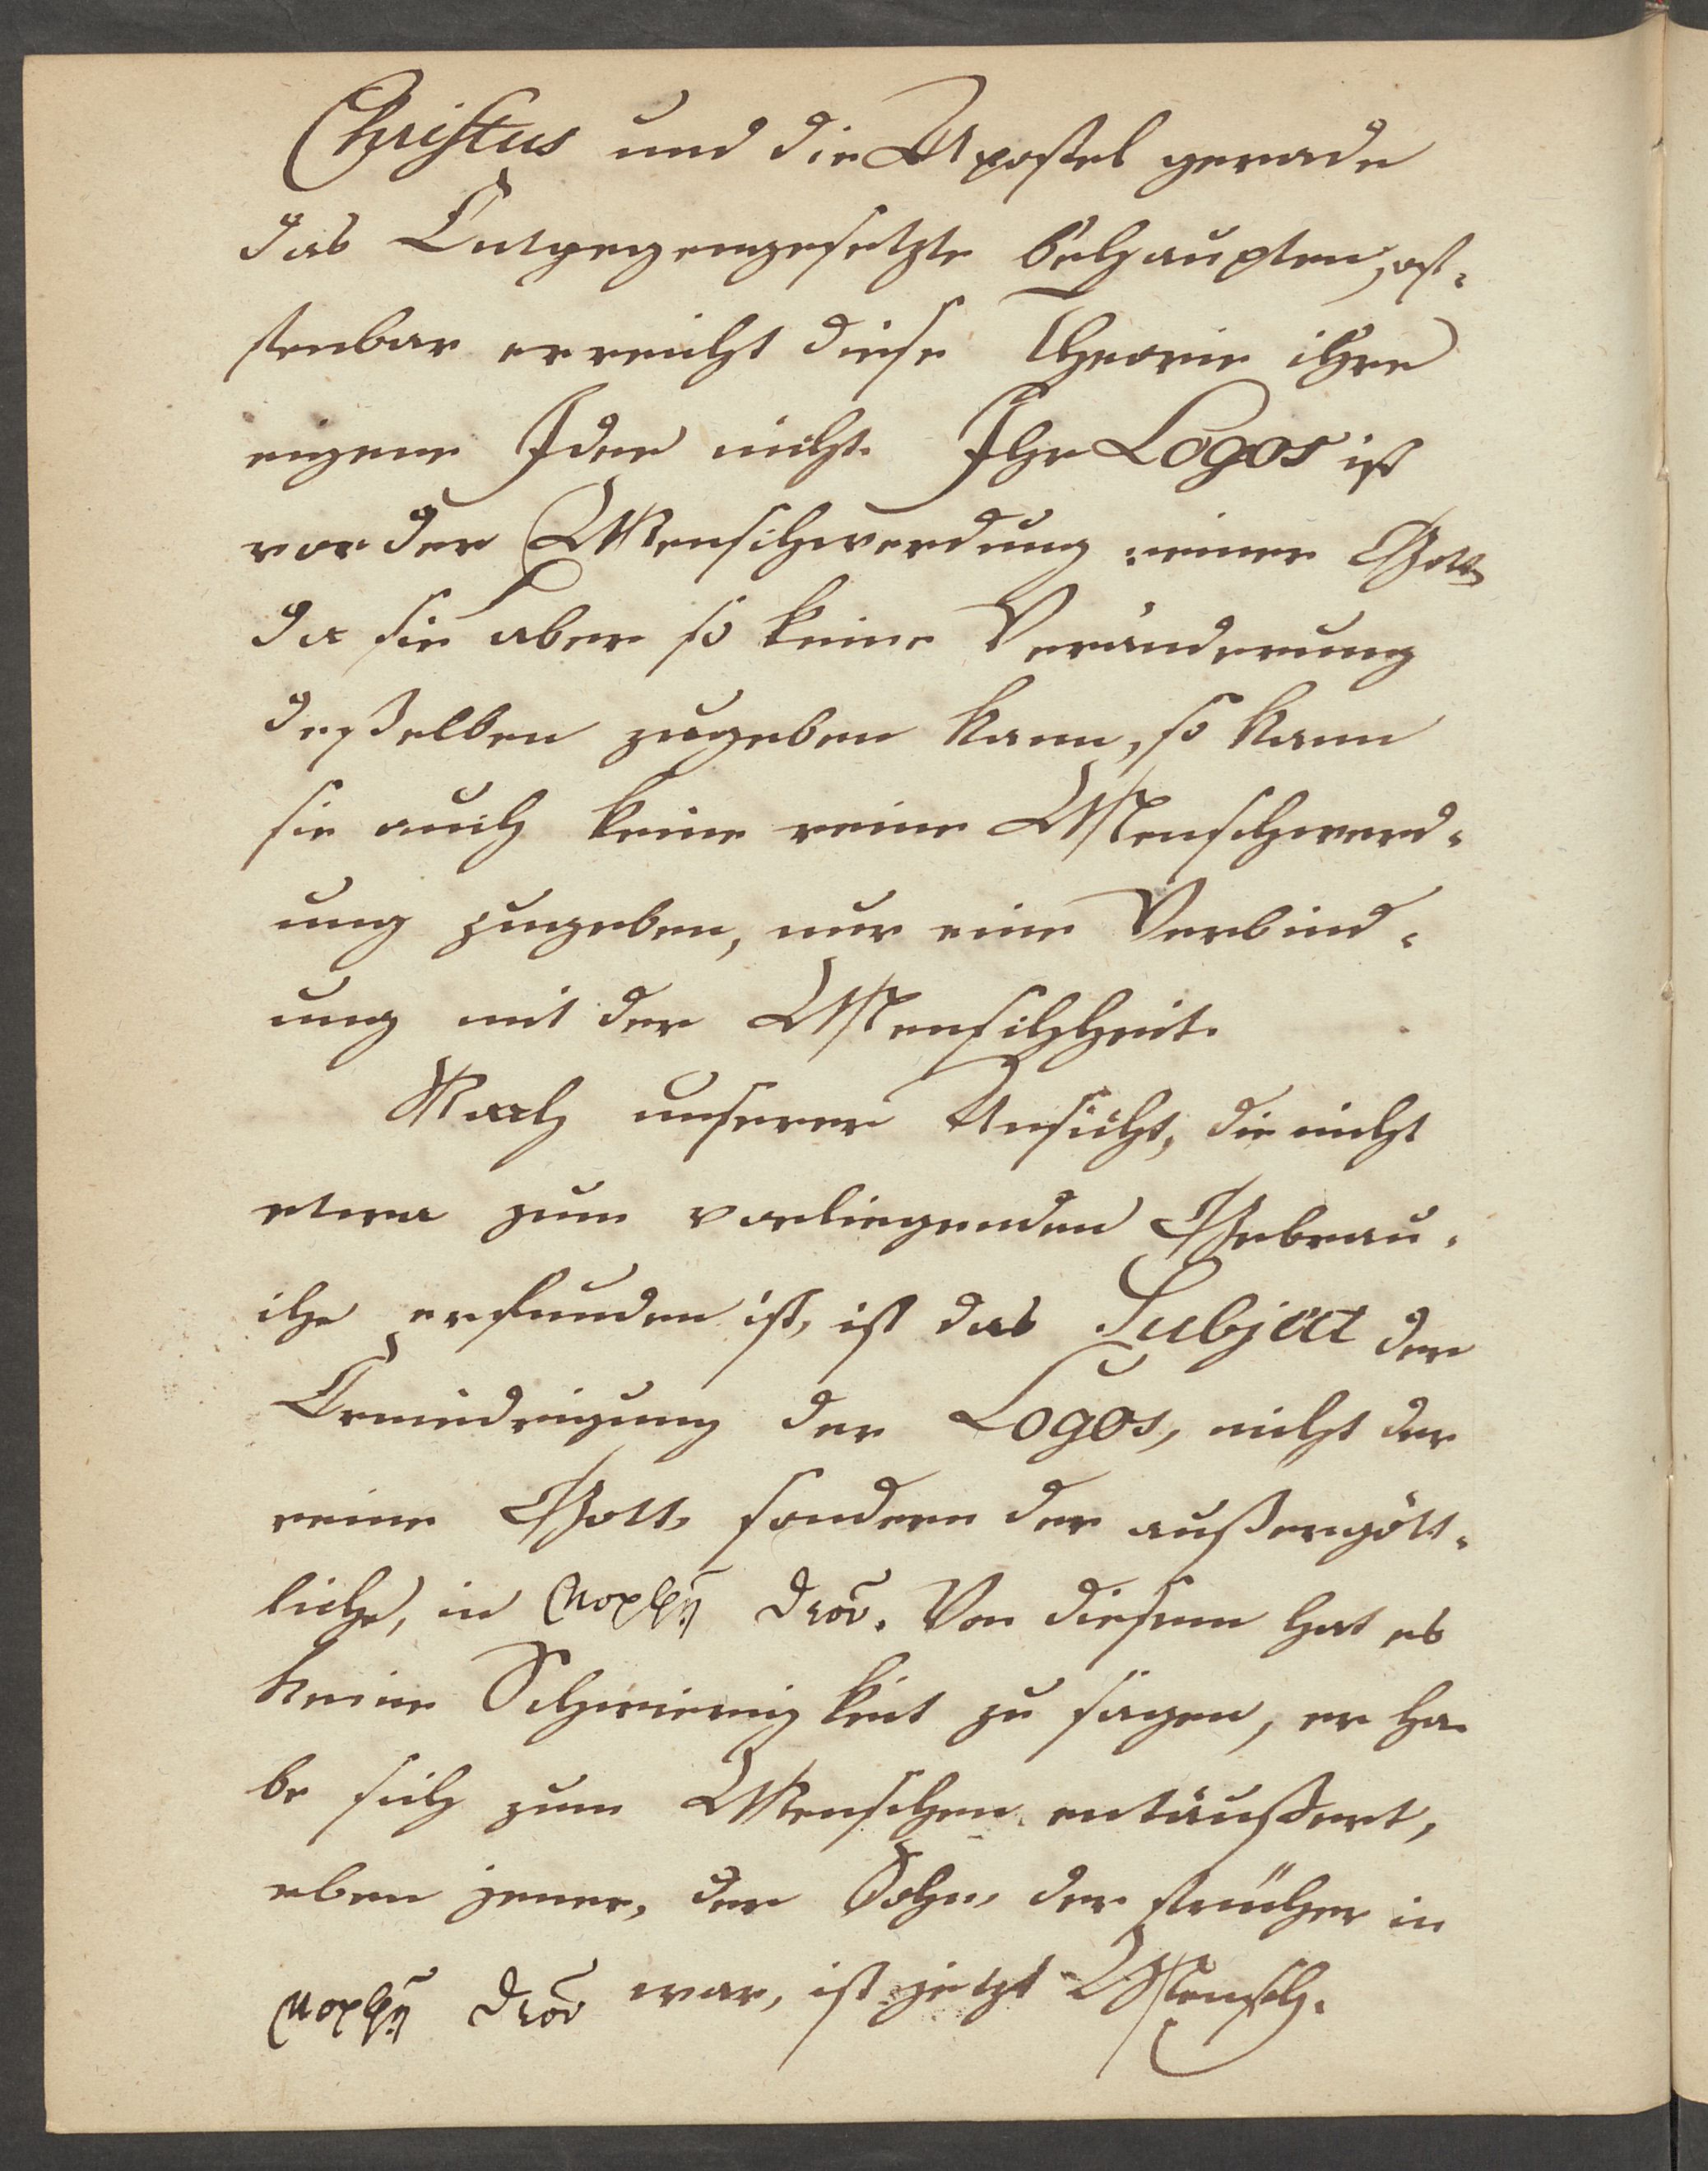 Christus und die Apostel gerade
das Entgegengesetzte behaupten, of-
fenbar erreicht diese Theorie ihre
eigene Idee nicht. Ihr Logos ist
vor der Menschwerdung reiner Gott
da sie aber so keine Veränderung
deßelben zugeben kann, so kann
sie auch keine reine Menschwerd-
ung zugeben, nur eine Verbind-
ung mit der Menschheit.
Nach unserer Ansicht, die nicht
etwa zum vorliegenden Gebrau-
che erfunden ist, ist das Subject der
Erniedrigung der Logos, nicht der
reine Gott, sondern der außergött-
liche, in μορφῇ θεοῦ. Von diesem hat es
keine Schwierigkeit zu sagen, er ha-
be sich zum Menschen entäußert,
eben jener, der Sohn, der früher in
μορφῇ θεοῦ war, ist jetzt Mensch.